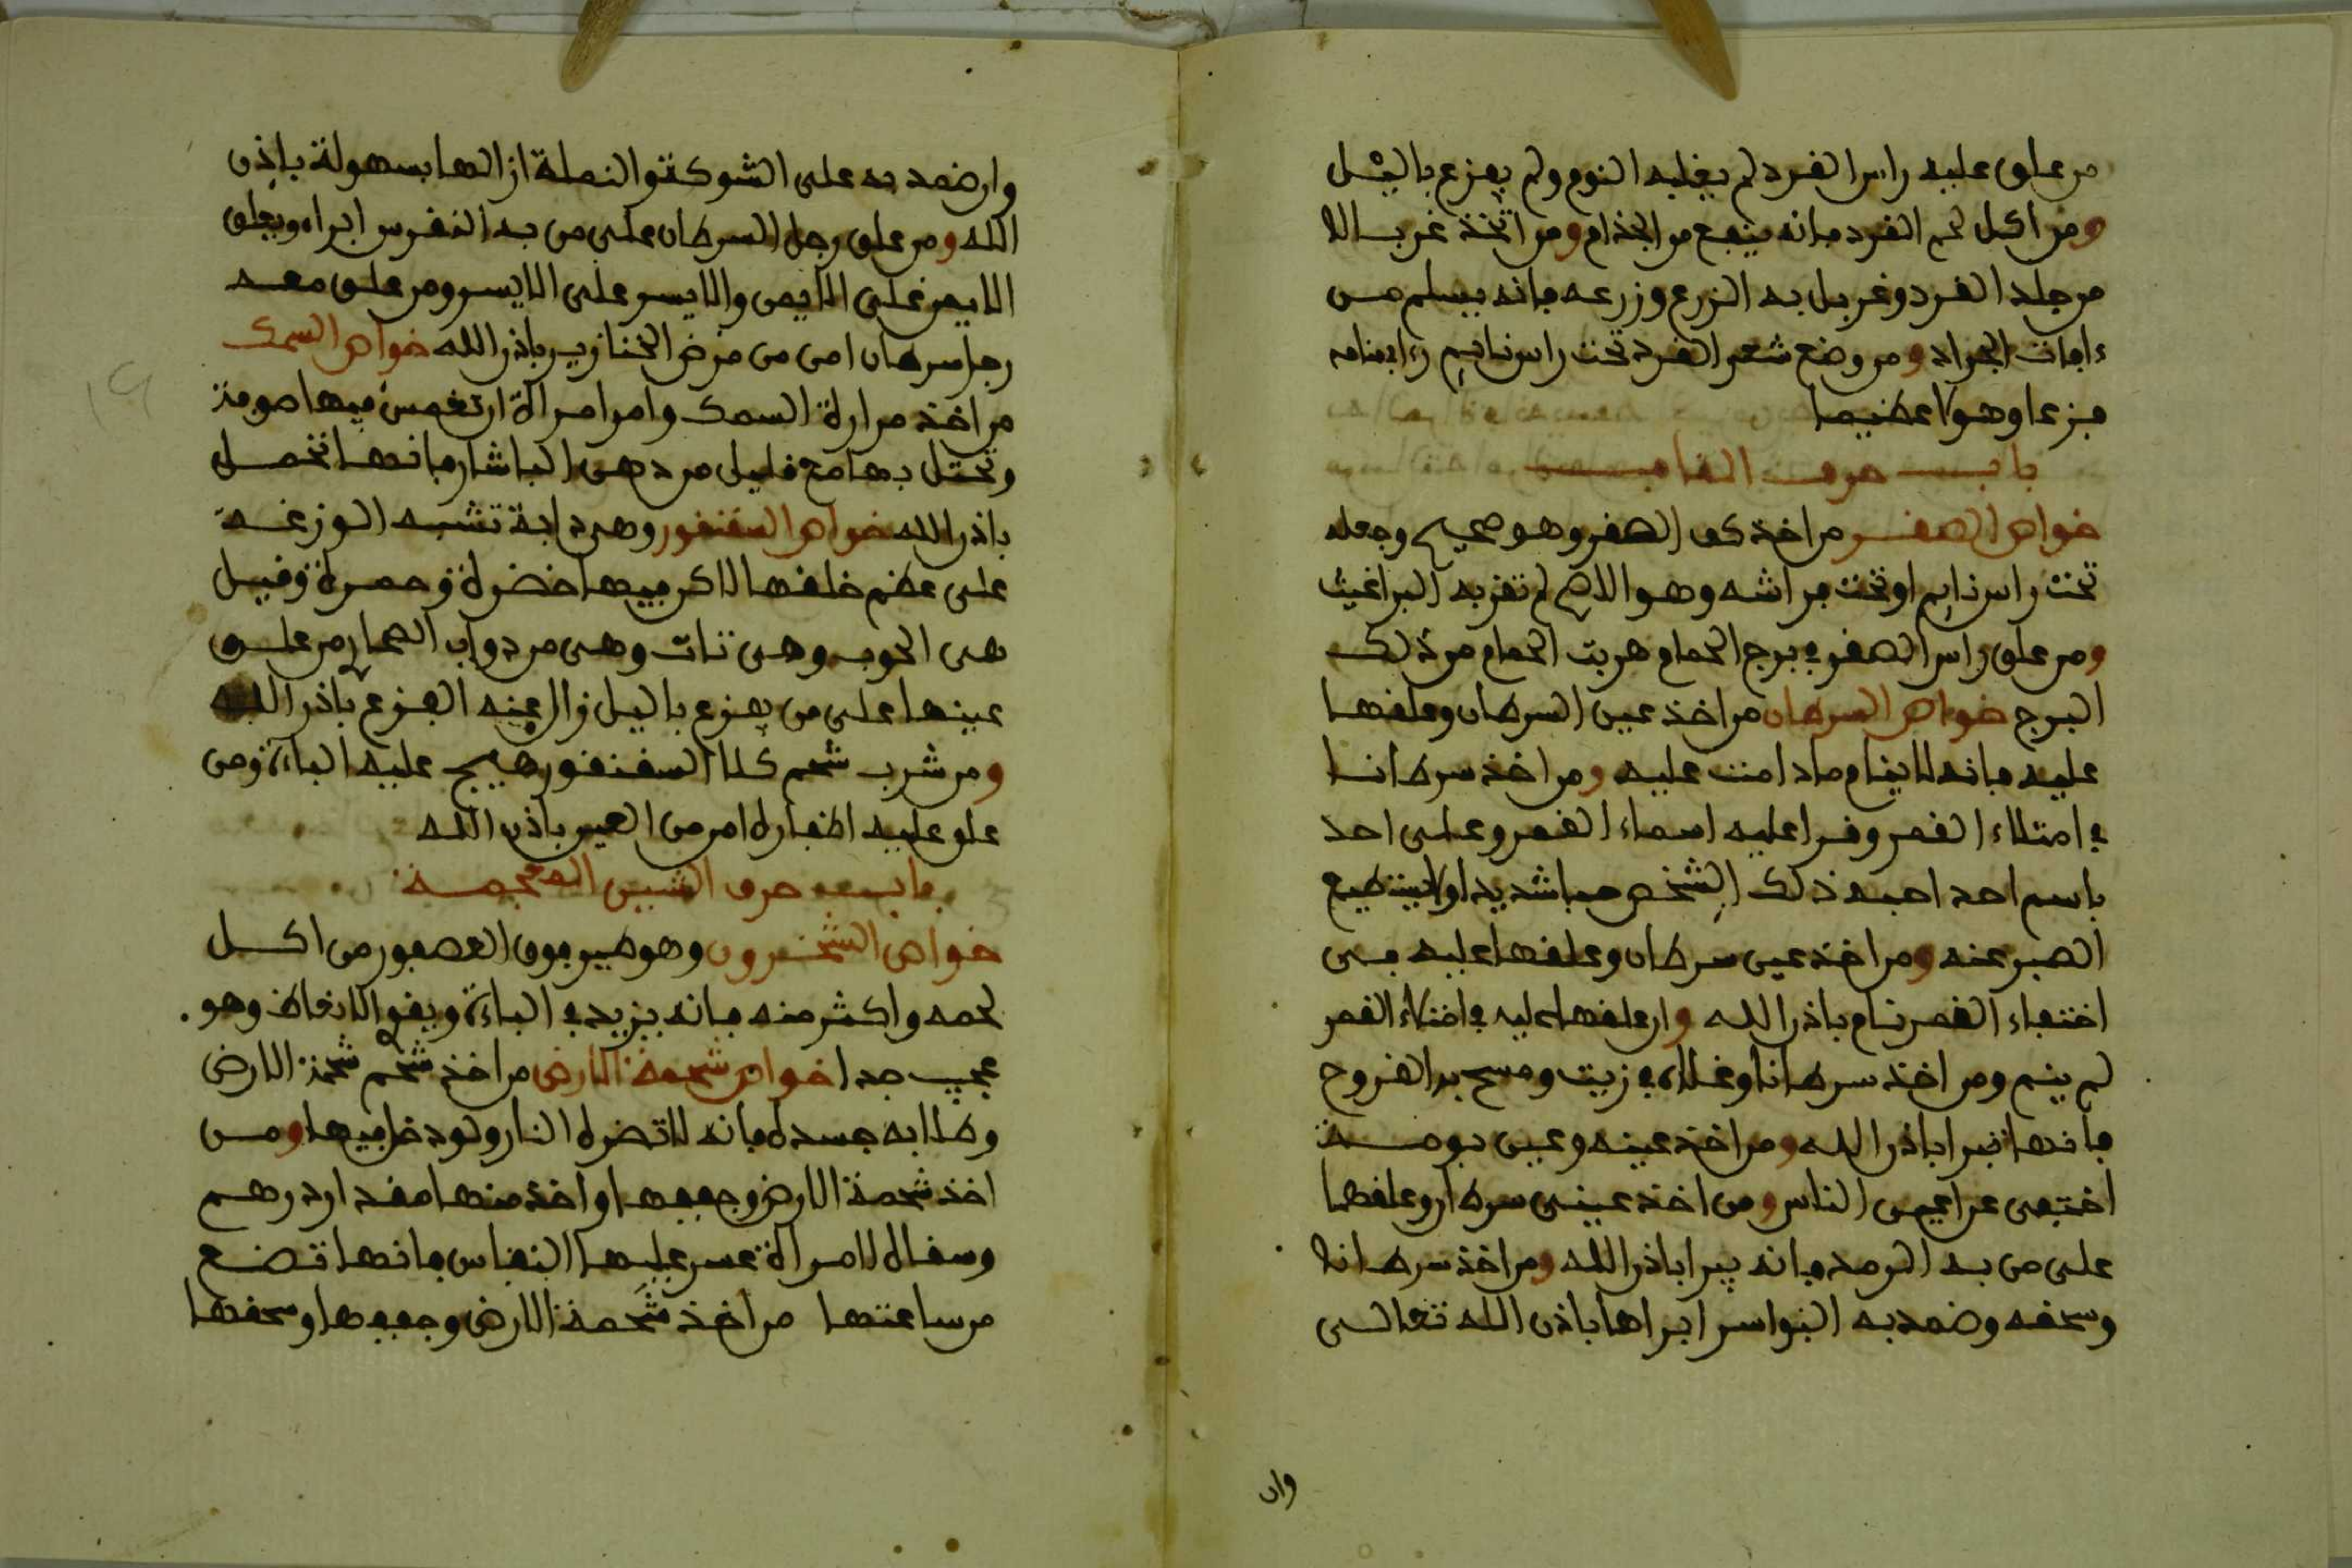 من علق عليه راس القرد لم يغلبه النوم ولم يفزع باليل
ومن اكل لحم القرد فانه ينفع من الجذام ومن اتخذ غربالا
من جلد القرد وغربل به الزرع وزرعه فانه يسلم من
ءافات الجراد ومن وضع شعر القرد تحت راس نايم رءا في منامه
فزعا وهولا عظيما
باب حرف
خواص الصقر من اخذ كف الصقر وهو صحيح وجعله
تحت راس نايم او تحت فراشه وهو الاصح لم تقربه البراغيث
ومن علق راس الصقر في برج الحمام هربت الحمام من ذلك
البرج خواص السرطان من اخذ عين السرطان وعلقها
عليه فانه لا ينام ما دامت عليه ومن اخذ سرطانا
في امتلاء القمر وقرا عليه اسماء القمر وعلى احد
باسم احد احبه ذلك الشخص حبا شديدا ولا يستطيع
الصبر عنه ومن اخذ عين سرطان وعلقها عليه في
اختفاء القمر نام باذن الله وان علقها عليه في امتلاء القمر
لم ينم ومن اخذ سرطانا وغلاه في زيت ومسح به القروح
فانها تبرا باذن الله ومن اخذ عينه وعين بومة
اختفى عن اعين الناس ومن اخذ عيني سرطان وعلقها
على من به الرمد فانه يبرا باذن الله ومن اخذ سرطانا
وسحقه وضمد به البواسر ابراها باذن الله تعالى
وان
وان ضمد به على الشوكة والنملة ازالها بسهولة باذن
الله ومن علق رجل السرطان على من به النقرس ابراه ويعلق
الايمن على الايمن والايسر على الايسر ومن علق معه
رجل سرطان امن من مرض الخنازير باذن الله خواص السمك
من اخذ مرارة السمك وامر امراة ان تغمس فيها صوفة
وتحتمل بها مع قليل من دهن فانها تحمل
باذن الله خواص السقنقور وهي دابة تشبه الوزغة
على عظم خلقها لاكن فيها خضرة وحمرة وقيل
هي وهي من دواب من علق
عينها على من يفزع باليل زال عنه الفزع باذن الله
ومن شرب شحم كلا السقنقور هيج عليه الباءة ومن
علق عليه اظفاره امن من العين باذن الله
باب حرف الشين المعجمة
خواص وهو طير فوق العصفور من اكل
لحمه واكثر منه فانه يزيد في الباءة ويقو الانعاظ وهو
عجيب جدا خواص شحمة الارض من اخذ شحم شحمة الارض
وطلا به جسده فانه لا تضره النار ولو دخل فيها ومن
اخذ شحمة الارض وجففها واخذ منها مقدار درهم
وسقاه لامراة عسر عليها النفاس فانها تضع
من ساعتها من اخذ شحمة الارض وجففها وسحقها